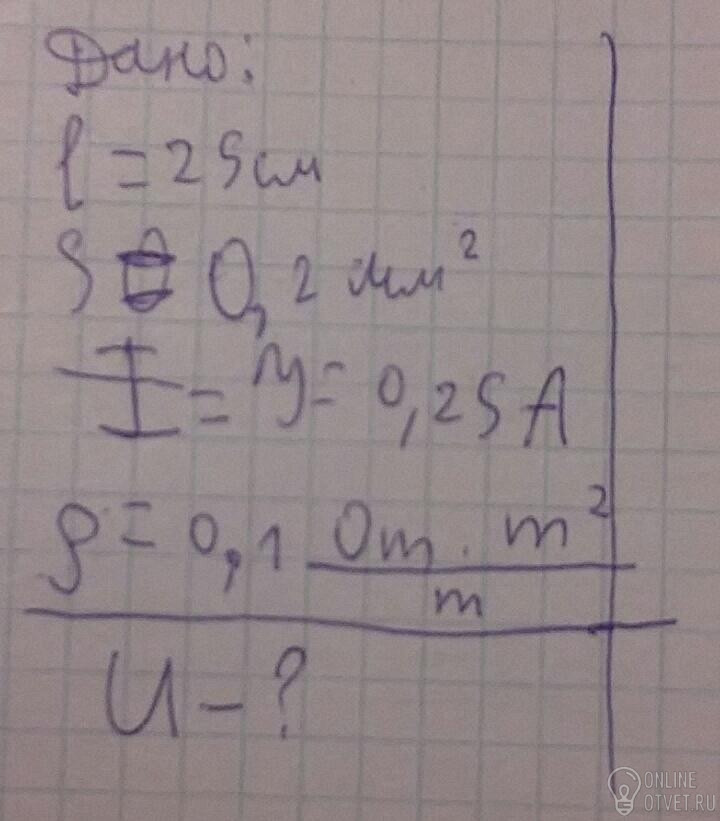 Дано:
l = 25 см
S = 0,2 мм²
I = У = 0,25 А
ρ = 0,1 Om · m²
m
U - ?
ONLINE
OTVET.RU